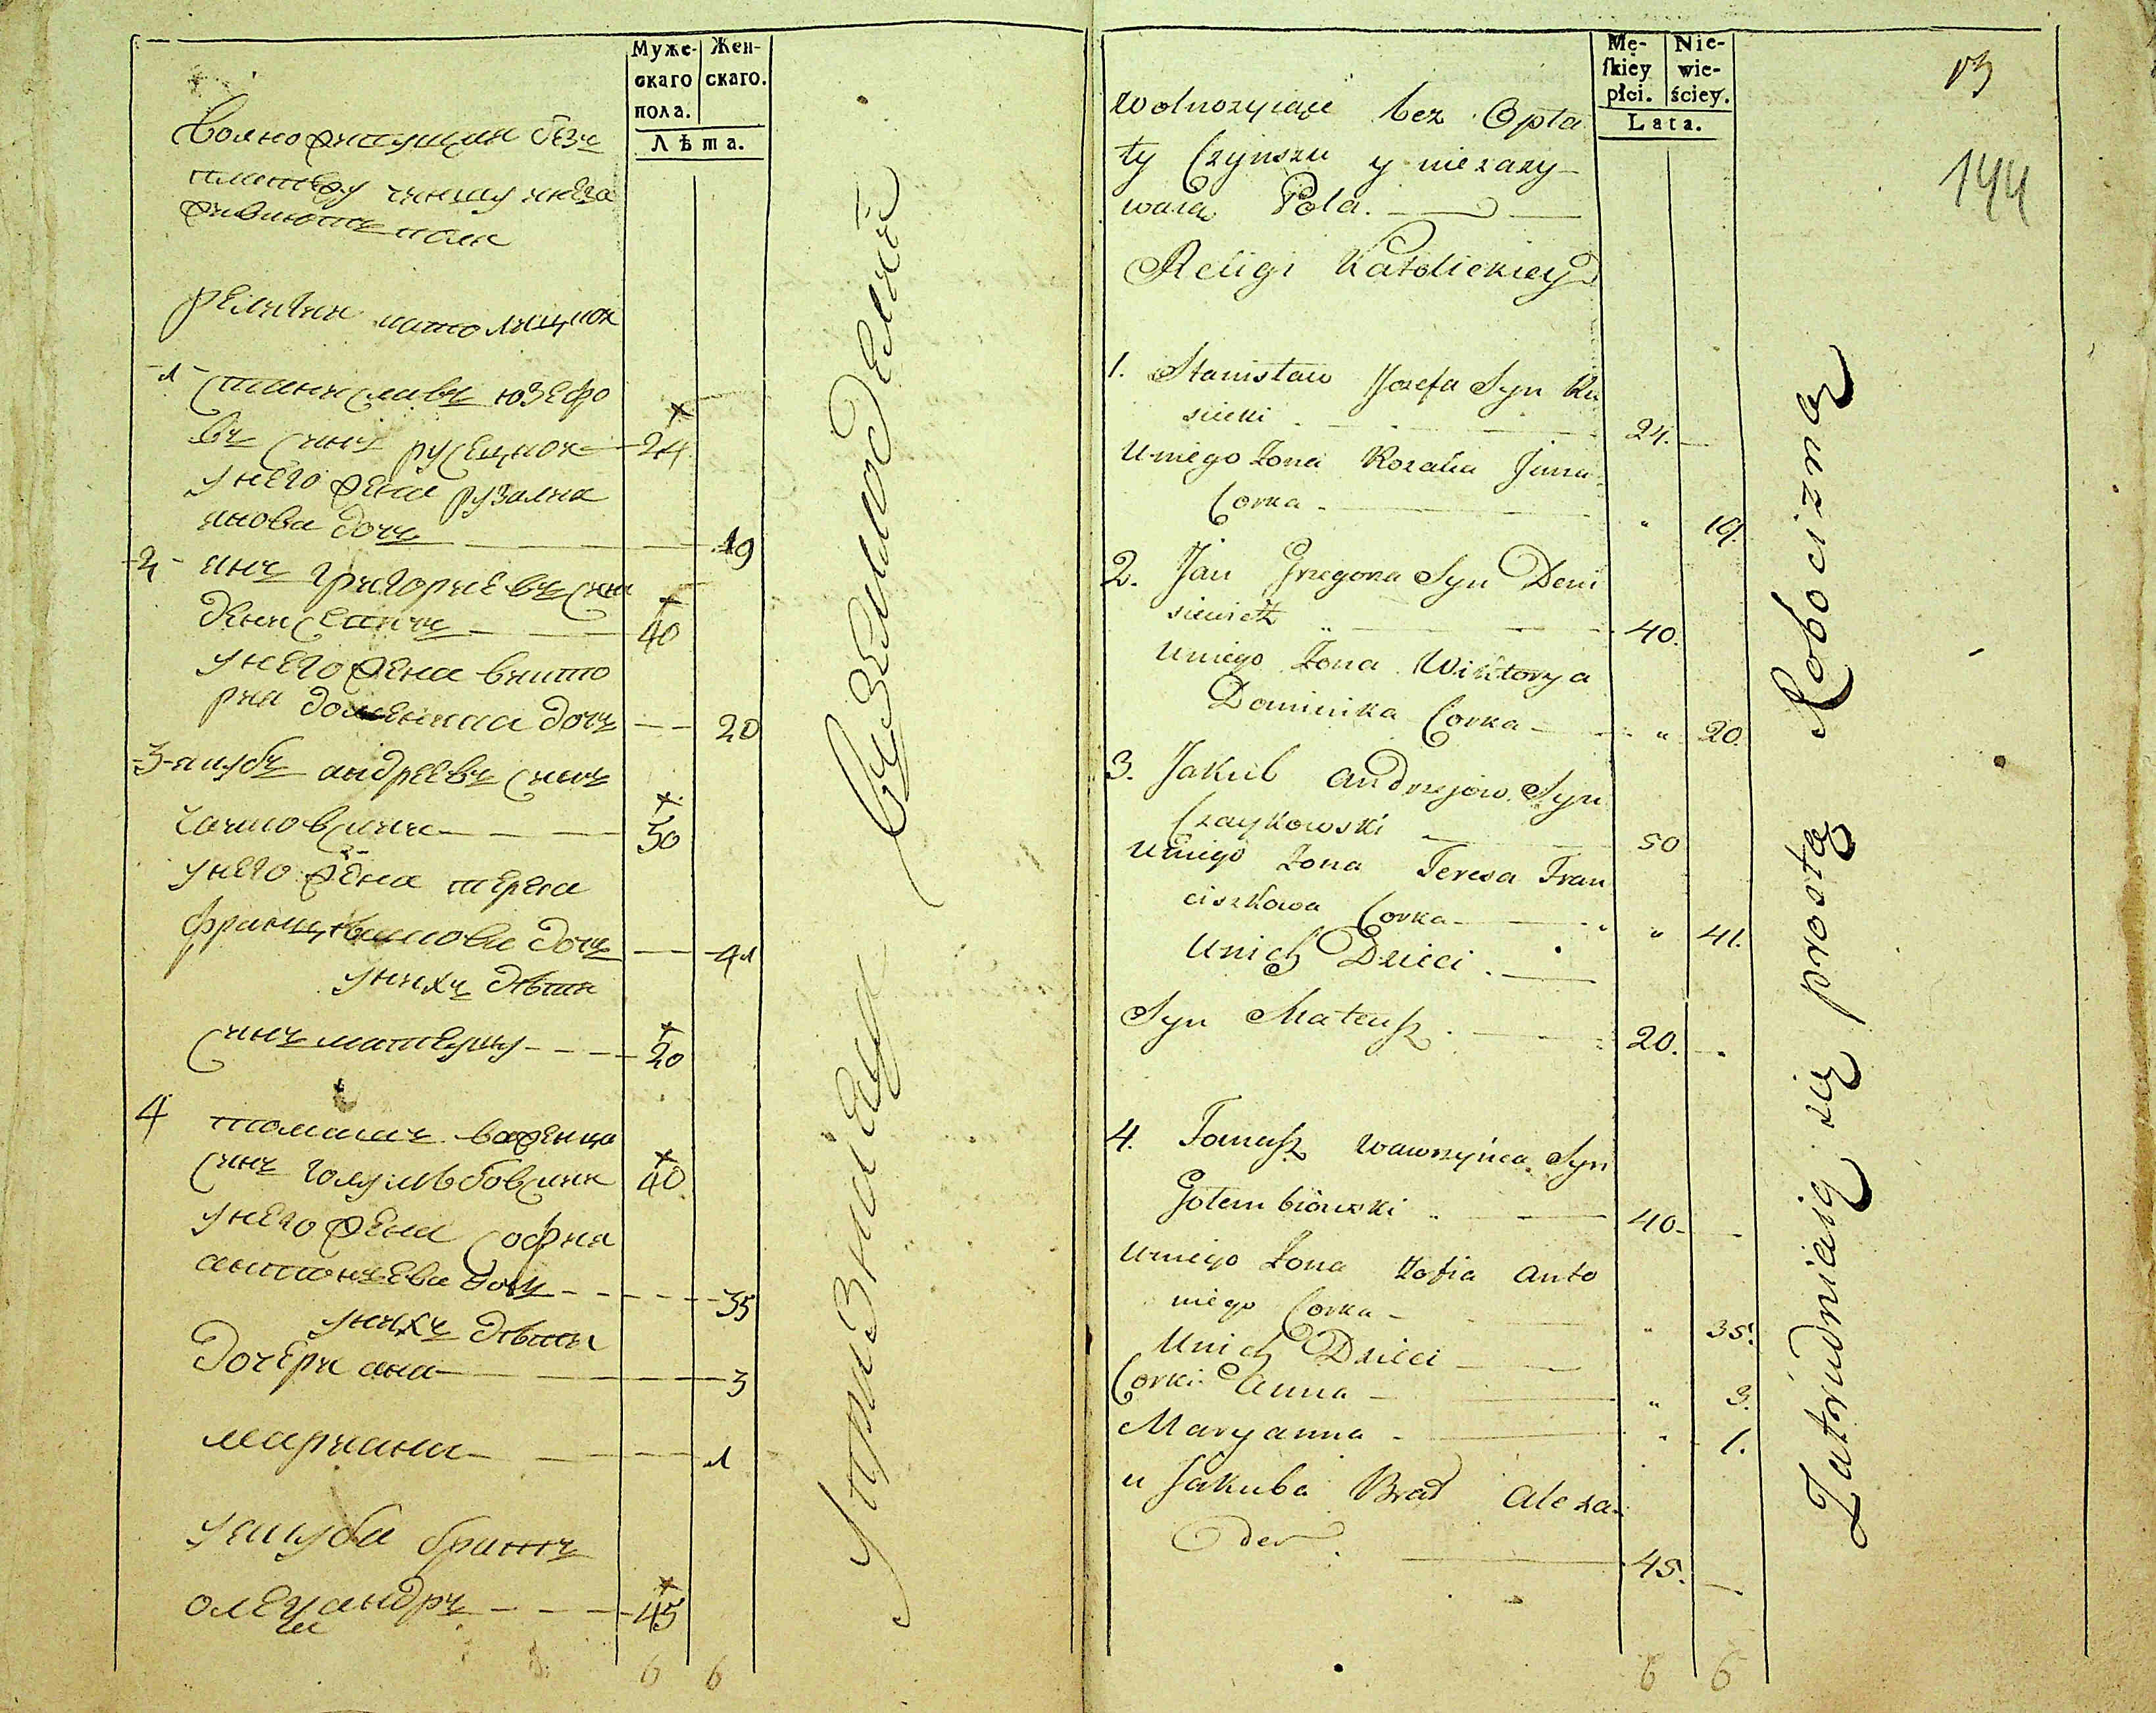 Муже-
скаго
пола.
Жен-
скаго.
Лѣта.
волно житущия безъ
платежу чиншу инеза
живають поля
релѣгии католицкой
1 Станиславъ юзефо
въ синъ русецкой 24
у него жена рузалия
янова дочъ 19
2 янъ григориевъ синъ
денисевичъ 40
у него жена викто
рия доменика дочъ 20
3 якубъ андреевъ синъ
чайковский 50
у него жена тереса
францѣшкова дочъ 41
у нихъ дѣти
синъ матеушъ 20
4 томашъ вавренца
синъ голумбѣовский 40
у него жена софия
антониева дочъ 35
у нихъ дѣти
дочери ана 3
марияна 1
у якуба братъ
олександръ 45
6 6
Mę-
ſkiey
płci.
Nie-
wie-
ściey.
Lata.
13
144
Wolnozyiące bez Opła
ty Czynszu y niezazy-
waią Pola.
Religi Katolickiey
1. Stanisław Jozefa Syn Ru
siecki 24.
U niego Zona Rozalia Jana
Corka 19.
2. Jan Grzegorza Syn Deni
siewicz 40.
U niego Zona Wiktorya
Dominika Corka 20.
3. Jakub Andrzejow Syn
Czaykowski 50
U niego Zona Teresa Fran
ciszkowa Corka 41.
U nich Dzieci
Syn Mateuſz 20.
4. Tomaſz Wawrzyńca Syn
Gołembiowski 40
U niego Zona Zofia Anto
niego Corka 35.
U nich Dzieci
Corki Anna 3.
Maryanna 1.
u Jakuba Brat Alexa-
der 45.
6 6
Zatrudniaią się prostą Robocizną